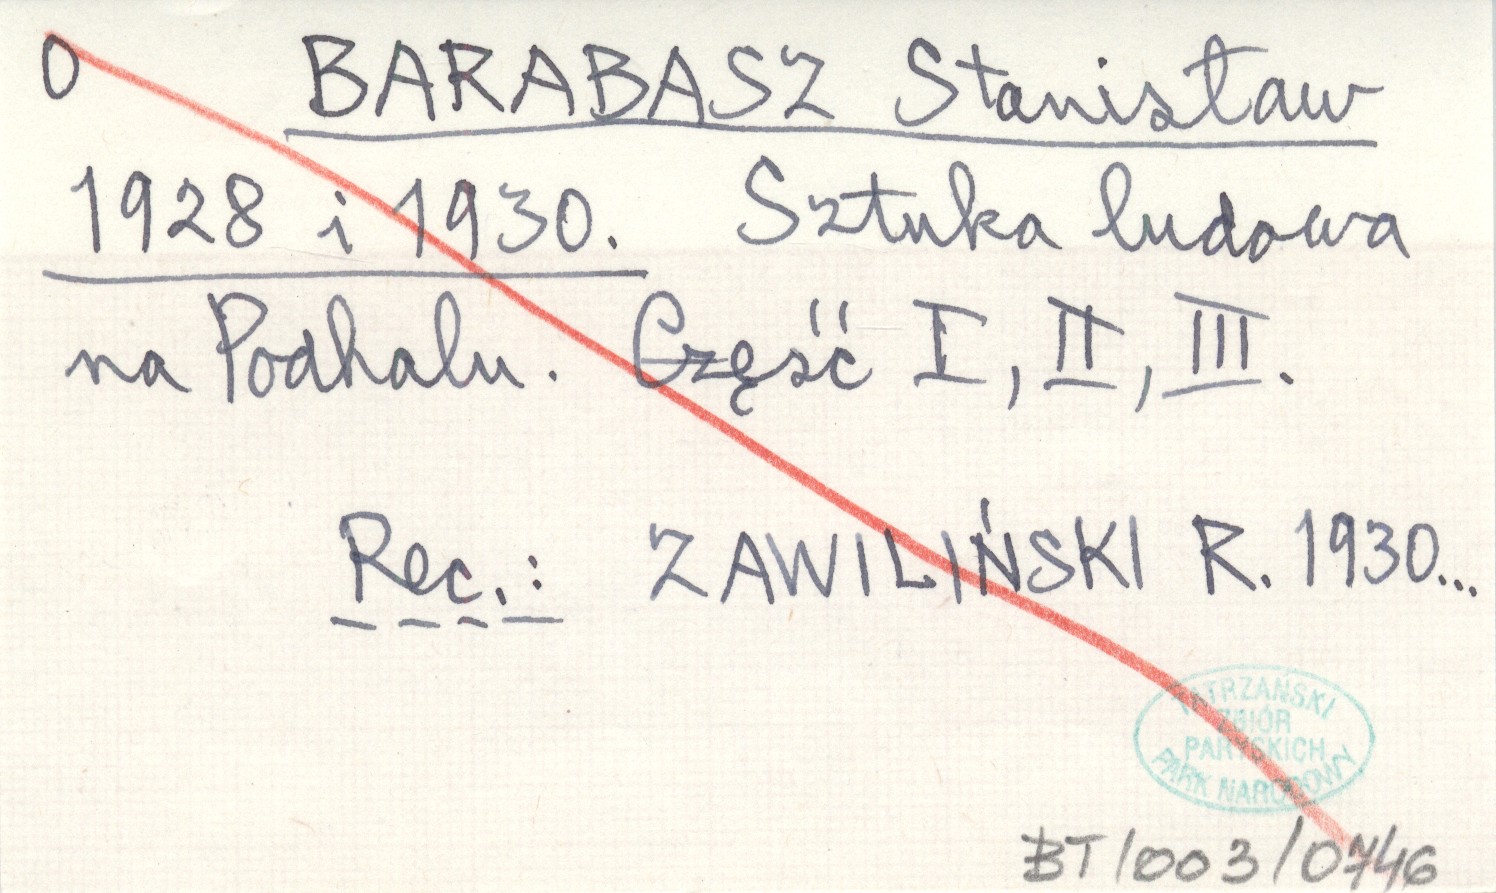 O BARABASZ Stanisław
1928 i 1930. Sztuka ludowa
na Podhalu. Część I, II, III.
Rec.: ZAWILIŃSKI R. 1930...
TATRZAŃSKI
ZBIÓR
PARYSKICH
PARK NARODOWY
BT/003/0746